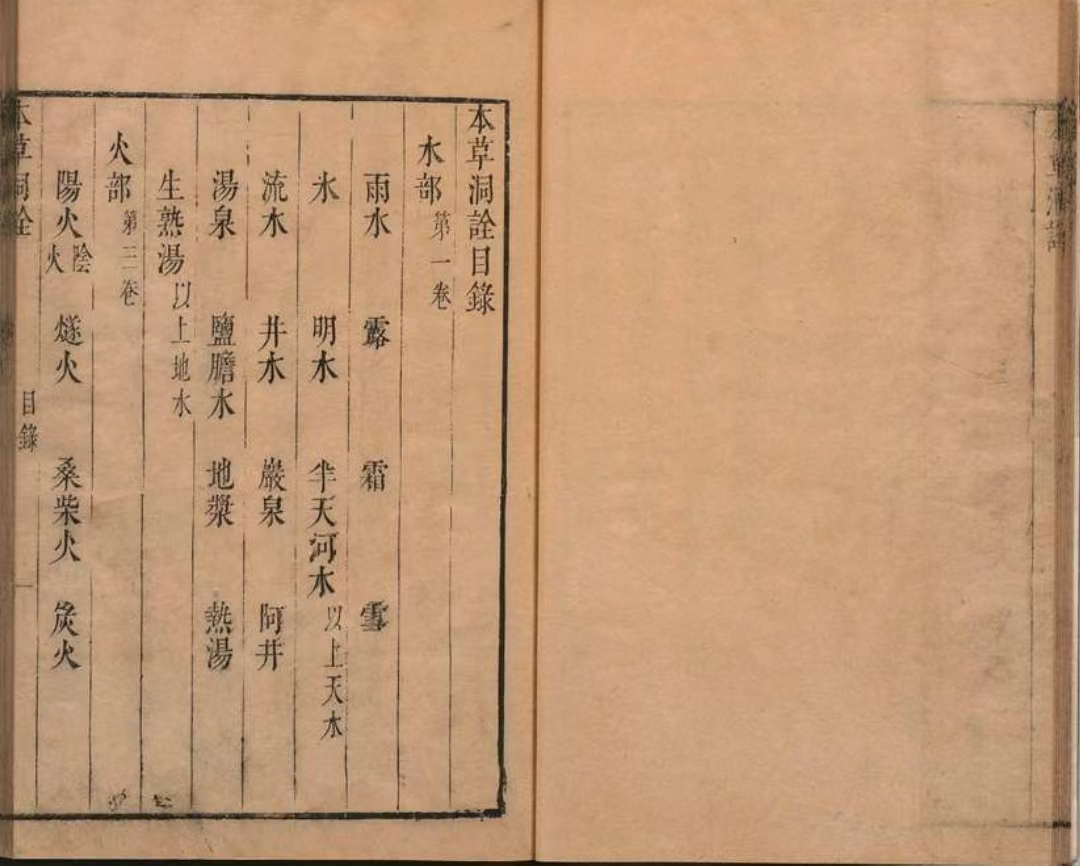 本草洞詮目錄
水部 第一卷
雨水 露 霜 雪
氷 明水 半天河水 以上天水
流水 井水 巖泉 阿井
湯泉 鹽膽水 地漿 熱湯
生熟湯 以上地水
火部 第二卷
陽火 陰火 燧火 桑柴火 炭火
本草洞詮 目錄 一